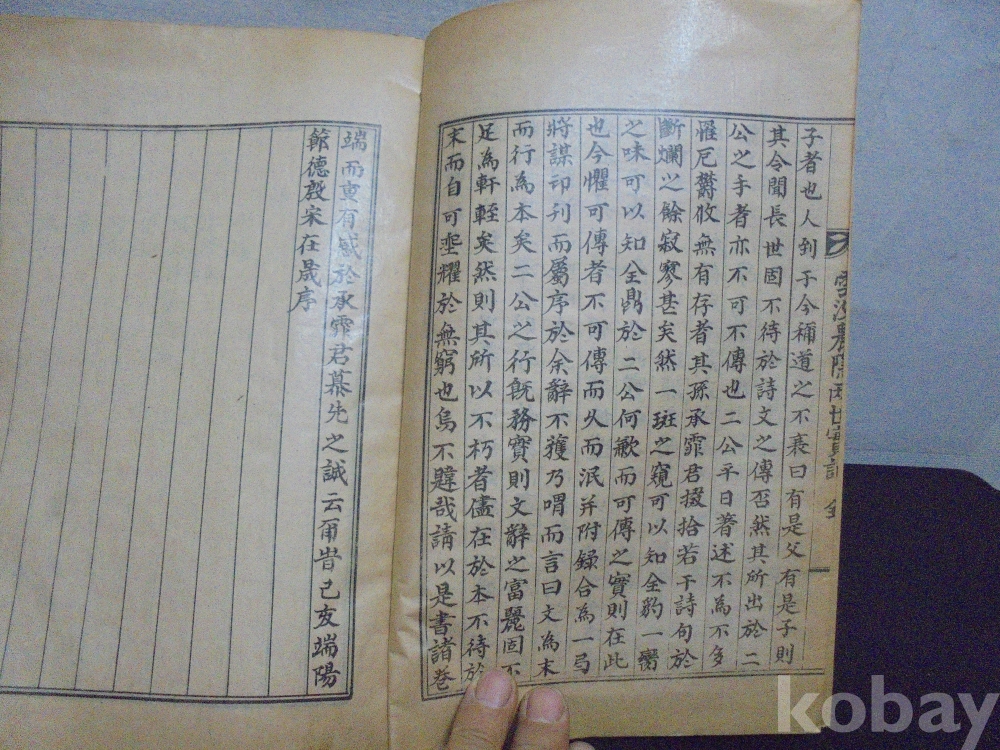 子者也人到于今稱道之不衰曰有是父有是子則
其令聞長世固不待於詩文之傳否然其所出於二
公之手者亦不可不傳也二公平日著述不為不多
罹厄欝攸無有存者其孫承霏君掇拾若干詩句於
斷爛之餘寂寥甚矣然一斑之窺可以知全豹一臠
之味可以知全鼎於二公何歉而可傳之實則在此
也今懼可傳者不可傳而久而泯并附録合為一弓
將謀印刊而屬序於余辭不獲乃喟而言曰文為末
而行為本矣二公之行既務實則文辭之富麗固不
足為軒輊矣然則其所以不朽者儘在於本不待於
末而自可垂耀於無窮也烏不韙哉請以是書諸卷
端而重有感於承霏君慕先之誠云爾旹己亥端陽
節德殷宋在晟序
兩世實記 全
kobay